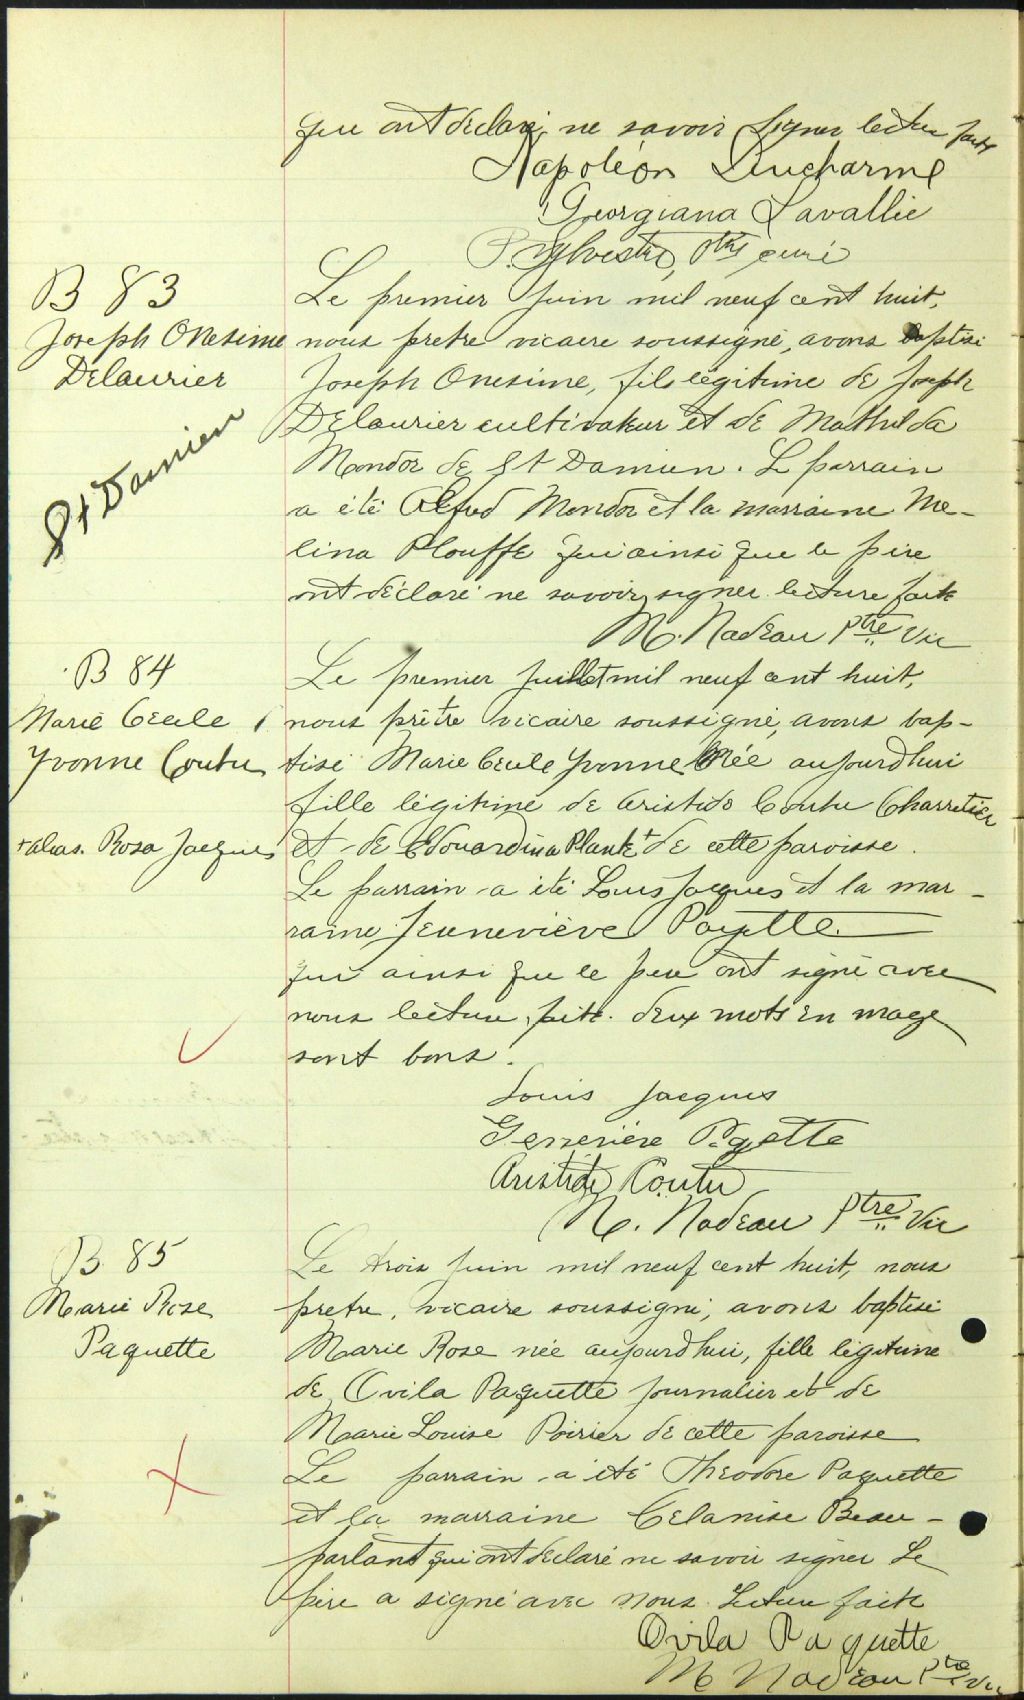 qui ont déclaré ne savoir signer lecture faite
Napoléon Ducharme
Georgiana Lavallée
P. Sylvestre, Ptre curé
B 83
Joseph Onesime
Delaurier
St Damien
Le premier Juin mil neuf cent huit,
nous pretre vicaire soussigné, avons baptisé
Joseph Onesime, fils légitime de Joseph
Delaurier cultivateur et de Mathilda
Mondor de St Damien. Le parrain
a été Alfred Mondor et la marraine Me-
lina Plouffe qui ainsi que le père
ont déclaré ne savoir signer lecture faite
M. Nadeau Ptre Vic
B 84
Marie Cecile
Yvonne Coutu
+ alias. Rosa Jacques
Le premier juillet mil neuf cent huit,
nous prêtre vicaire soussigné, avons bap-
tisé Marie Cecile Yvonne Née aujourdhui
fille légitime de Aristide Coutu Charretier
et de Edouardina Plante + de cette paroisse.
Le parrain a été Louis Jacques et la mar-
raine Jeuneviève Payette
qui ainsi que le père ont signé avec
nous lecture faite. deux mots en marge
sont bons.
Louis Jacques
Genevière Payette
Aristide Coutu
M. Nadeau Ptre Vic
B 85
Marie Rose
Paquette
Le trois juin mil neuf cent huit, nous
pretre, vicaire soussigné, avons baptisé
Marie Rose née aujourdhui, fille légitime
de Ovila Paquette journalier et de
Marie Louise Poirier de cette paroisse
Le parrain a été Theodore Paquette
et la marraine Celanise Beau-
parlant qui ont déclaré ne savoir signer Le
père a signé avec nous. Lecture faite
Ovila Paquette
M Nadeau Ptre Vic